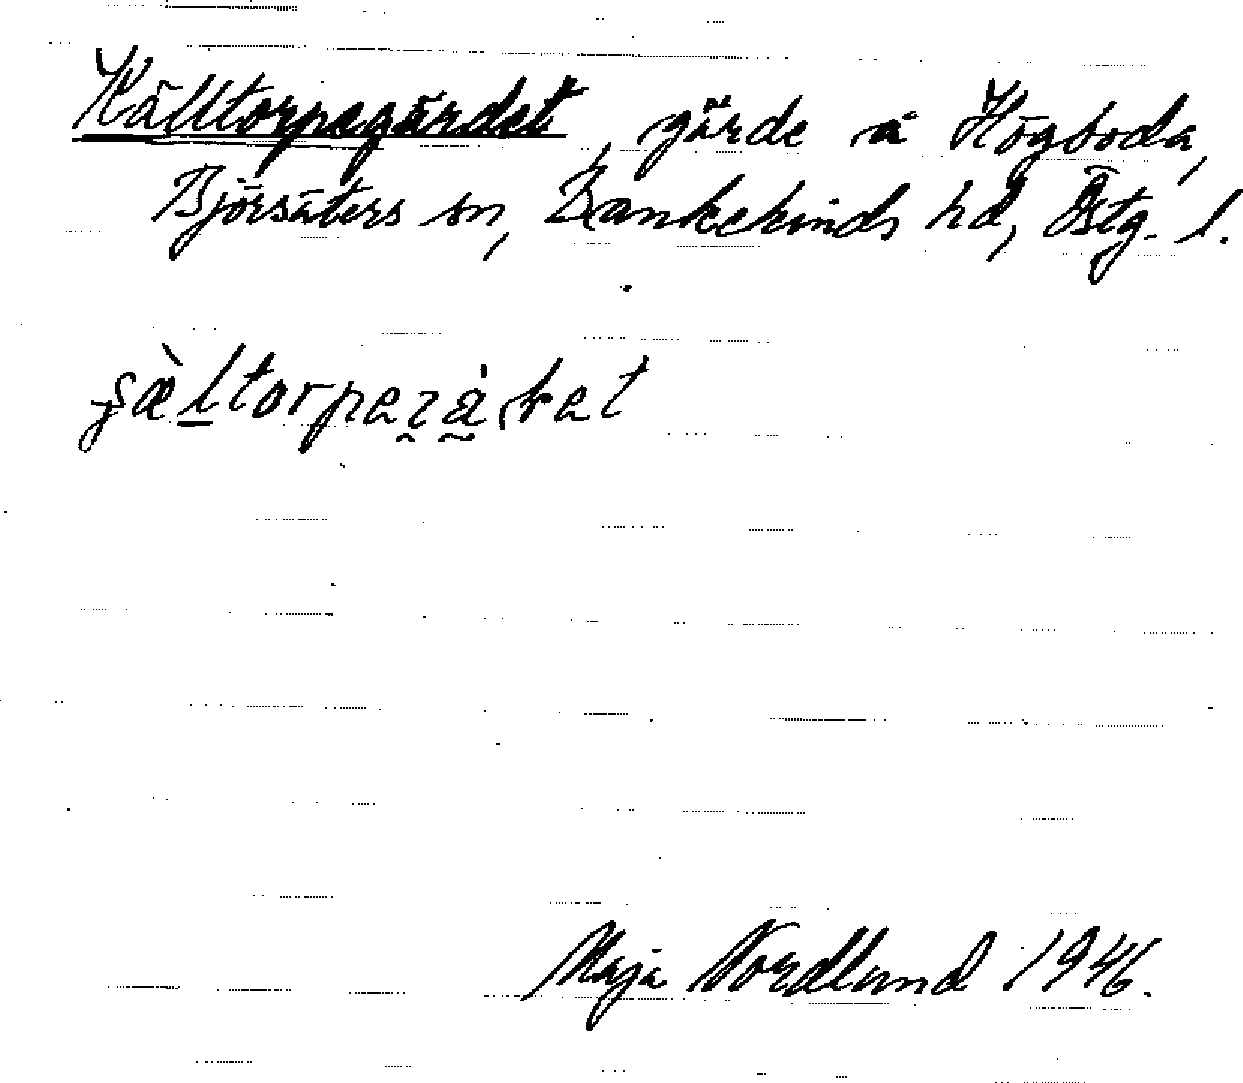 Källtorpegärdet, gärde å Högboda,
Björsäters sn, Bankekinds hd, Östg. l.
Maja Nordlund 1946.